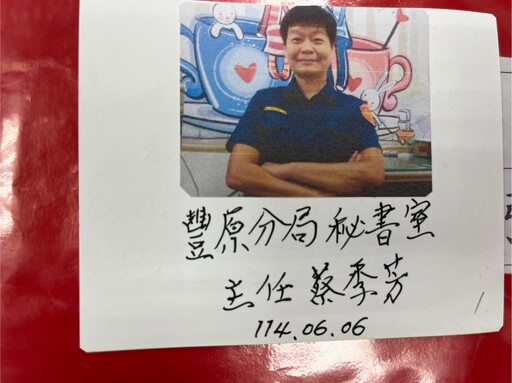 豐原分局秘書室
主任蔡季芳
114.06.06